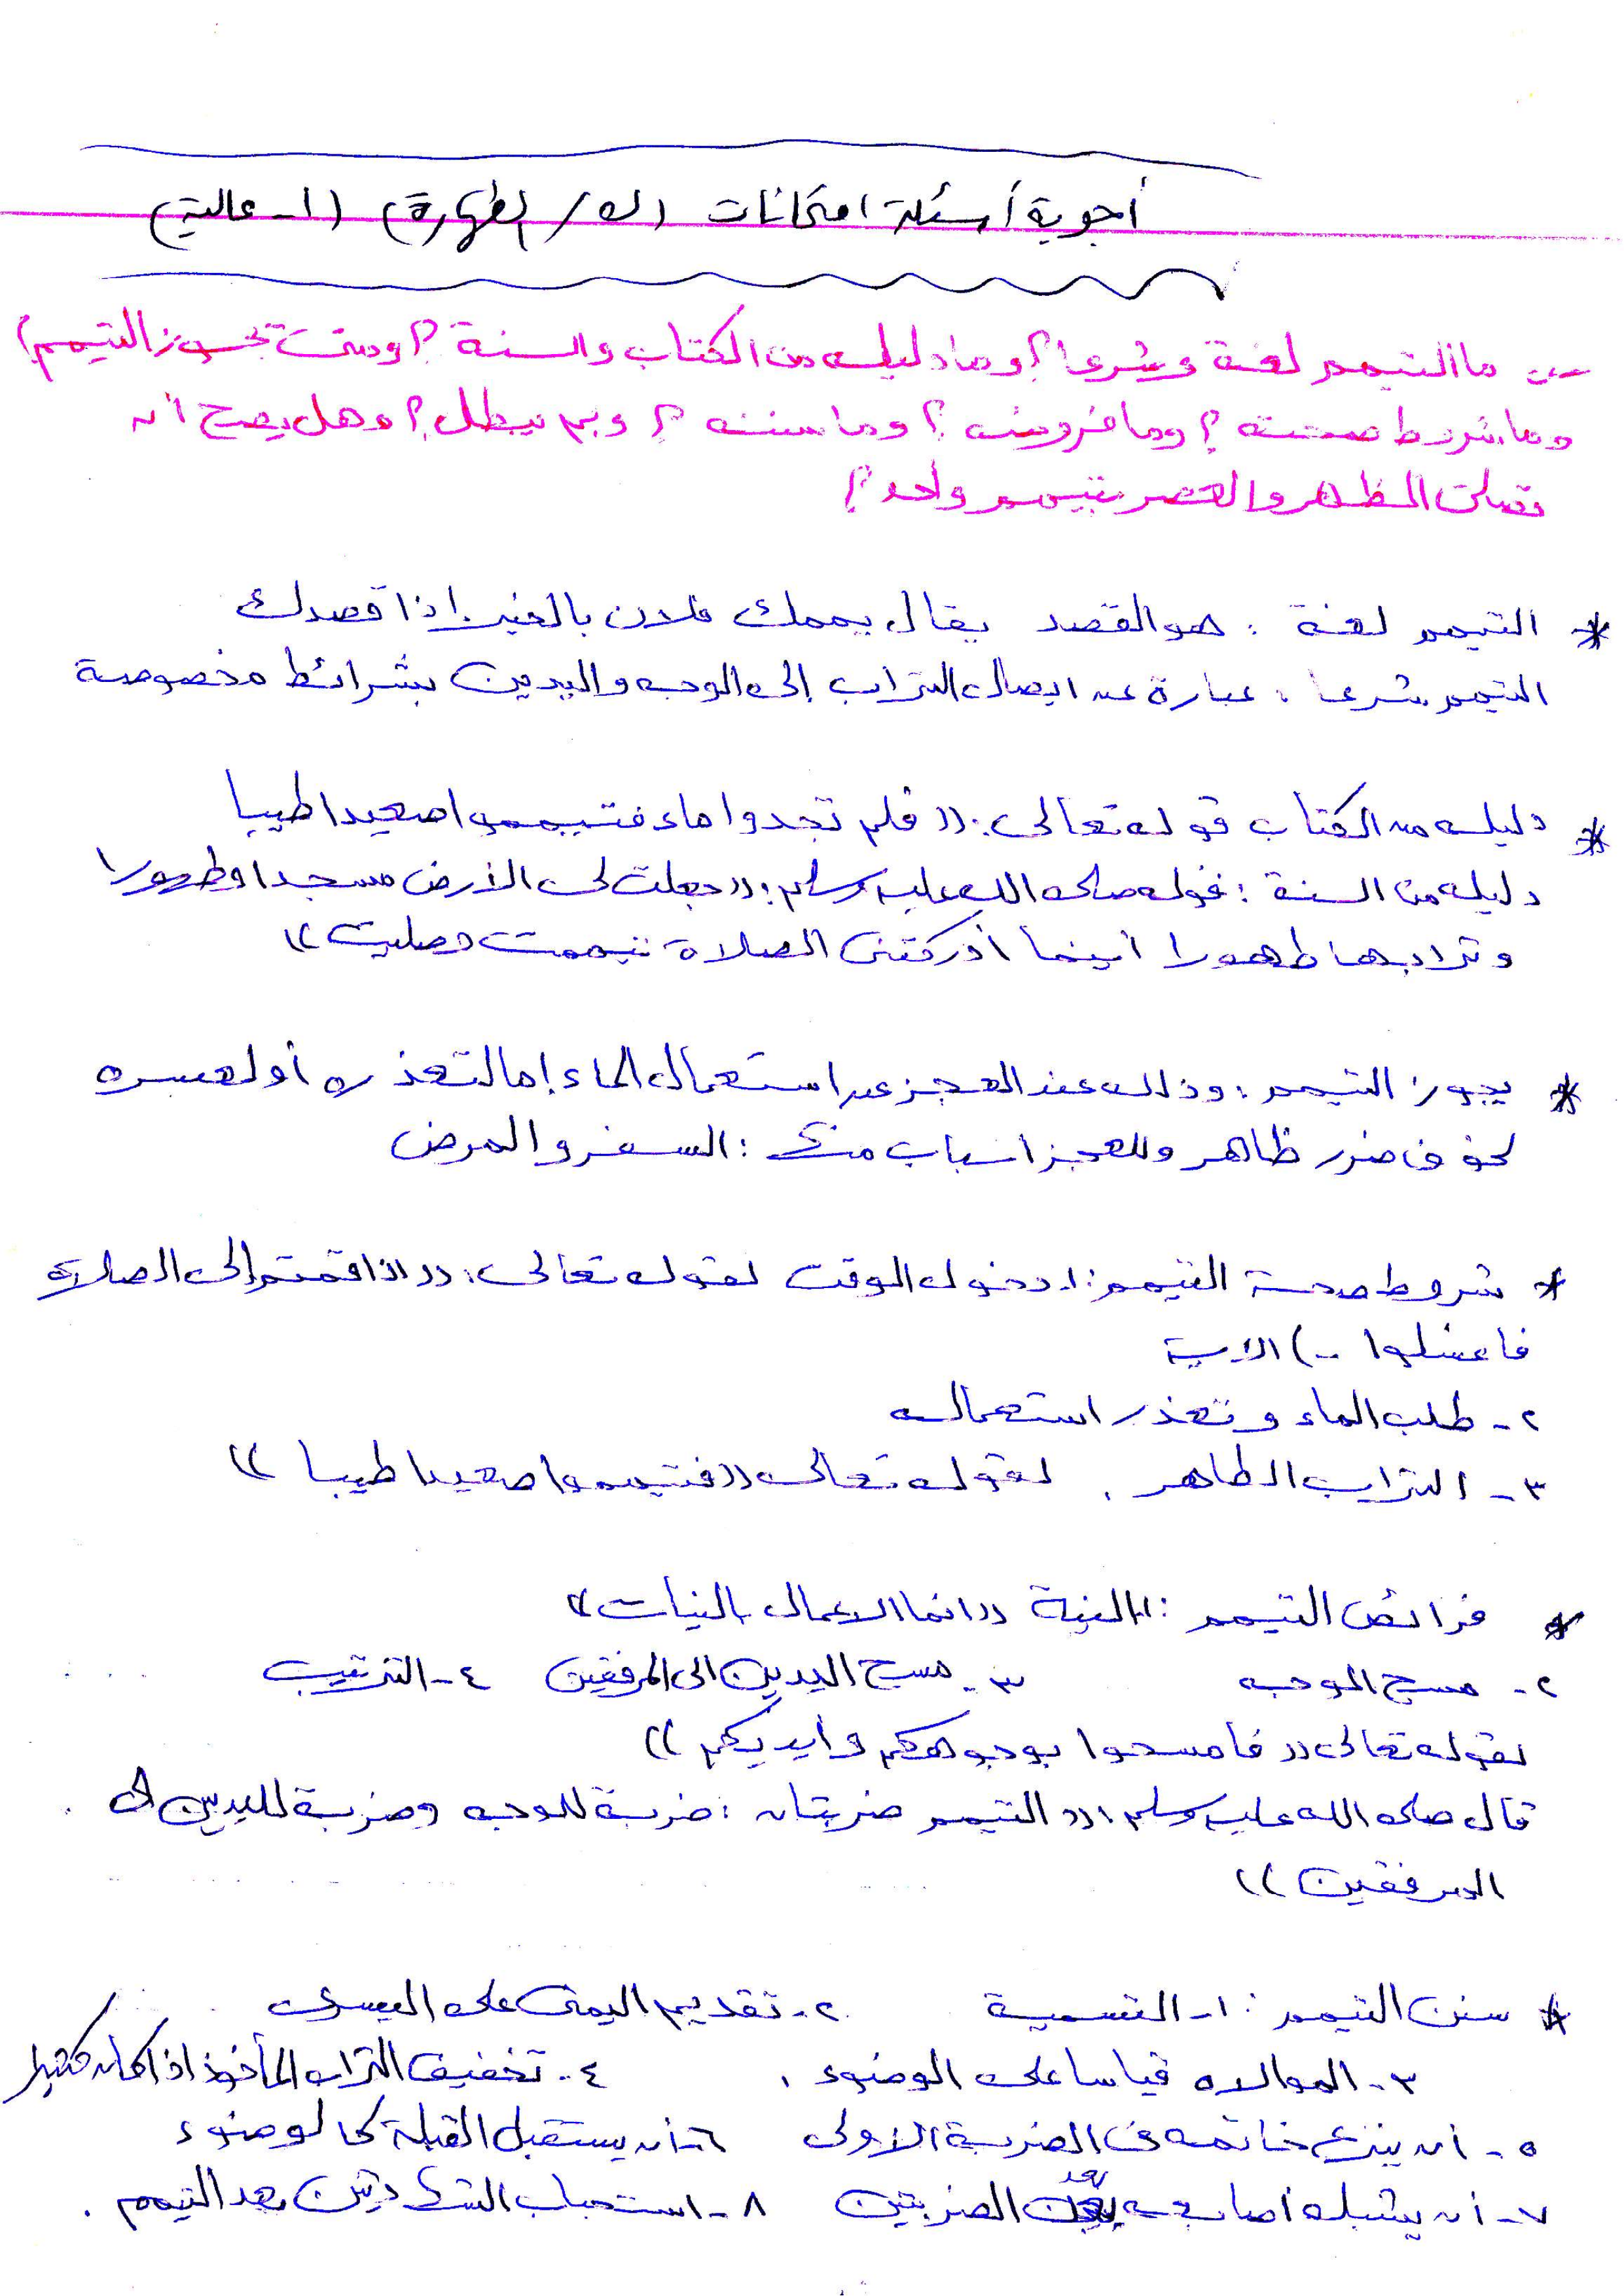 أجوبة أسئلة امتحانات (ك / الطهارة) (١- عالية)
س: ما التيمم لغة وشرعا؟ وما دليله من الكتاب والسنة؟ ومتى يجوز التيمم؟
وما شروط صحته؟ وما فروضه؟ وما سننه؟ وبم يبطل؟ وهل يصح أن
تصلى الظهر والعصر بتيمم واحد؟
* التيمم لغة : هو القصد يقال يممك فلان بالخير إذا قصدك
التيمم شرعا : عبارة عن ايصال التراب إلى الوجه واليدين بشرائط مخصوصة
* دليله من الكتاب قوله تعالى : ((فلم تجدوا ماء فتيمموا صعيدا طيبا
دليله من السنة : قوله صلى الله عليه وسلم : ((جعلت لى الأرض مسجدا وطهورا
وترابها طهورا أينما أدركتنى الصلاة تيممت وصليت))
* يجوز التيمم : وذلك عند العجز عن استعمال الماء إما لتعذره أو لعسره
لخوف ضرر ظاهر وللعجز اسباب منها : السفر والمرض
* شروط صحة التيمم : ١- دخول الوقت لقوله تعالى : ((اذا قمتم إلى الصلاة
فاغسلوا ..) الاية
٢- طلب الماء وتعذر استعماله
٣- التراب الطاهر . لقوله تعالى ((فتيمموا صعيدا طيبا))
* فرائض التيمم : ١- النية ((انما الاعمال بالنيات))
٢- مسح الوجه ٣- مسح اليدين الى المرفقين ٤- الترتيب
لقوله تعالى ((فامسحوا بوجوهكم وأيديكم))
قال صلى الله عليه وسلم : ((التيمم ضربتان : ضربة للوجه وضربة لليدين الى
المرفقين))
* سنن التيمم : ١- التسمية ٢- تقديم اليمنى على اليسرى
٣- الموالاه قياسا على الوضوء . ٤- تخفيف التراب المأخوذ اذا كان كثيرا
٥- أن ينزع خاتمه فى الضربة الاولى ٦- أن يستقبل القبلة كالوضوء
٧- أن يشبك أصابعه بعد الضربتين ٨- استحباب الشهادتين بعد التيمم .